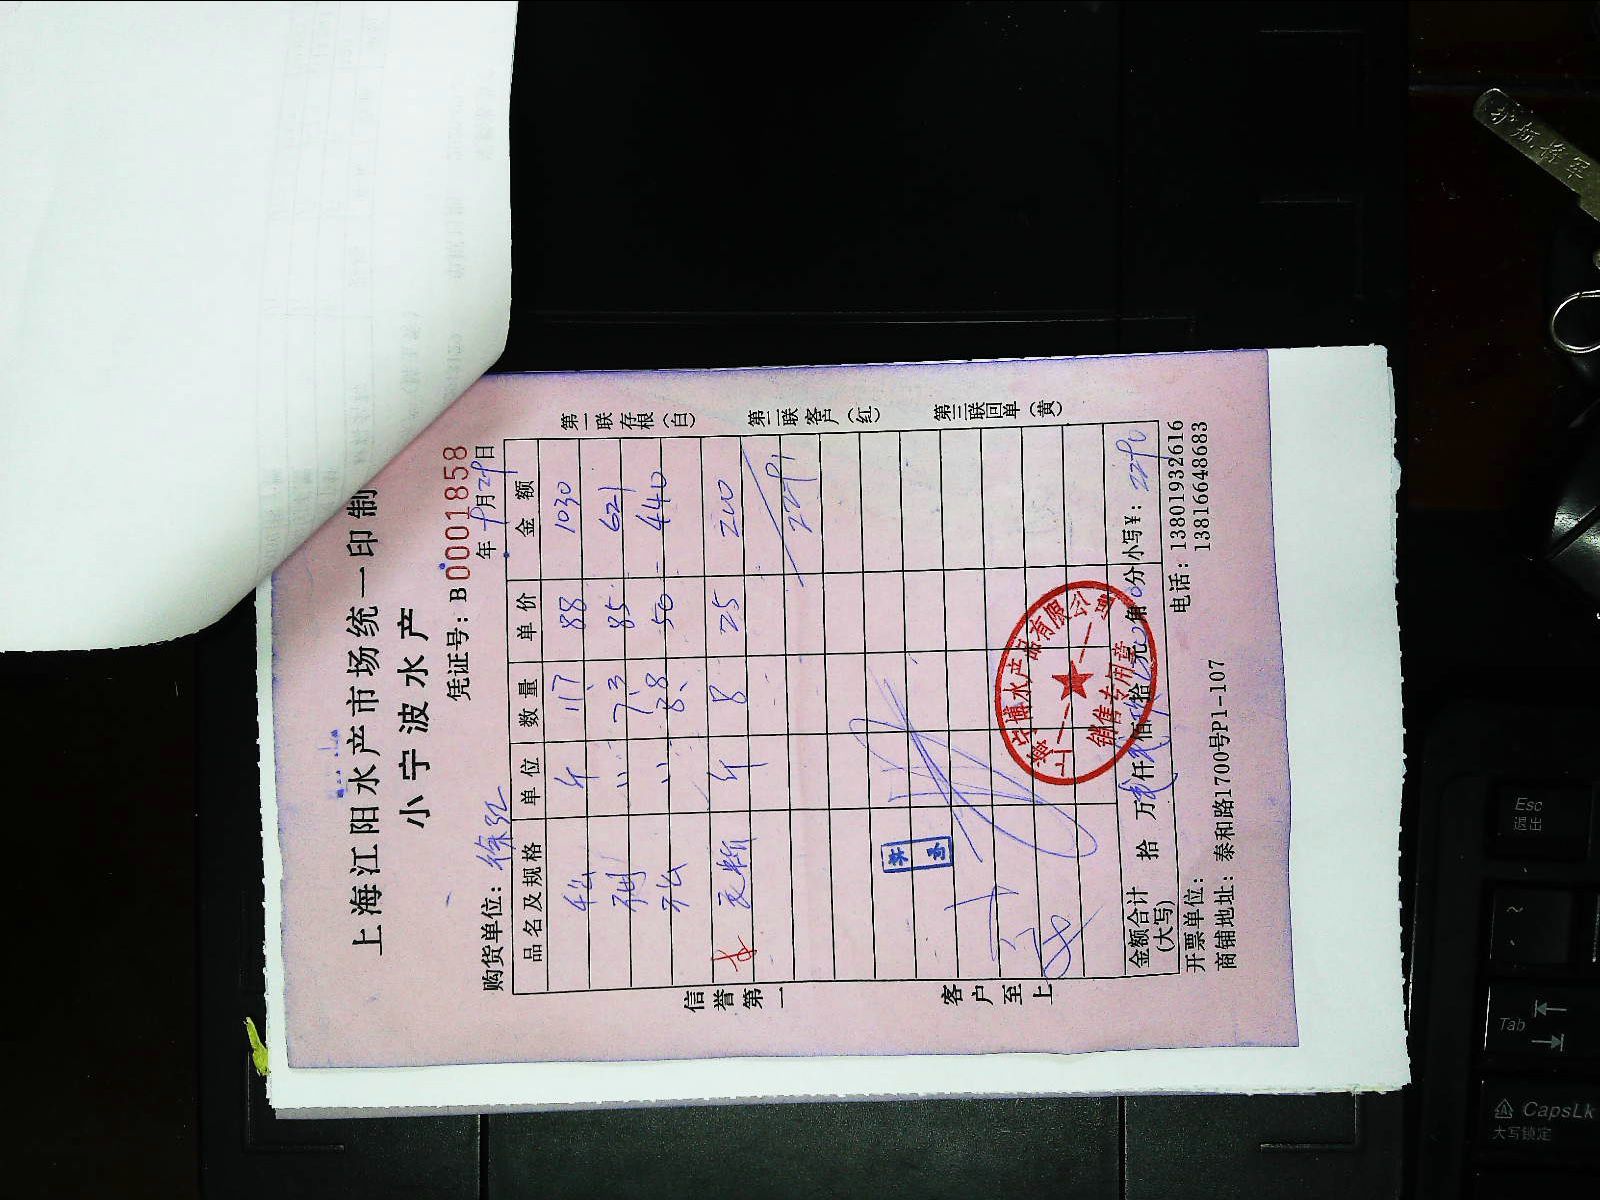 上海江阳水产市场统一印制
小宁波水产
凭证号：B0001858
购货单位：徐红 年9月29日
品名及规格 单位 数量 单价 金额
斤 11.7 88 1030
〃 7.3 85 621
〃 8.8 50 440
斤 8 25 200
2291
金额合计(大写) 拾 万 仟 佰 拾 元 角 分 小写¥：2290
开票单位：
电话：13801932616
13816648683
商铺地址：泰和路1700号P1-107
信誉第一
客户至上
第一联存根（白）
第二联客户（红）
第三联回单（黄）
水产品有限公司
销售专用章
护航将军
Esc
退出
~
Tab
CapsLk
大写锁定